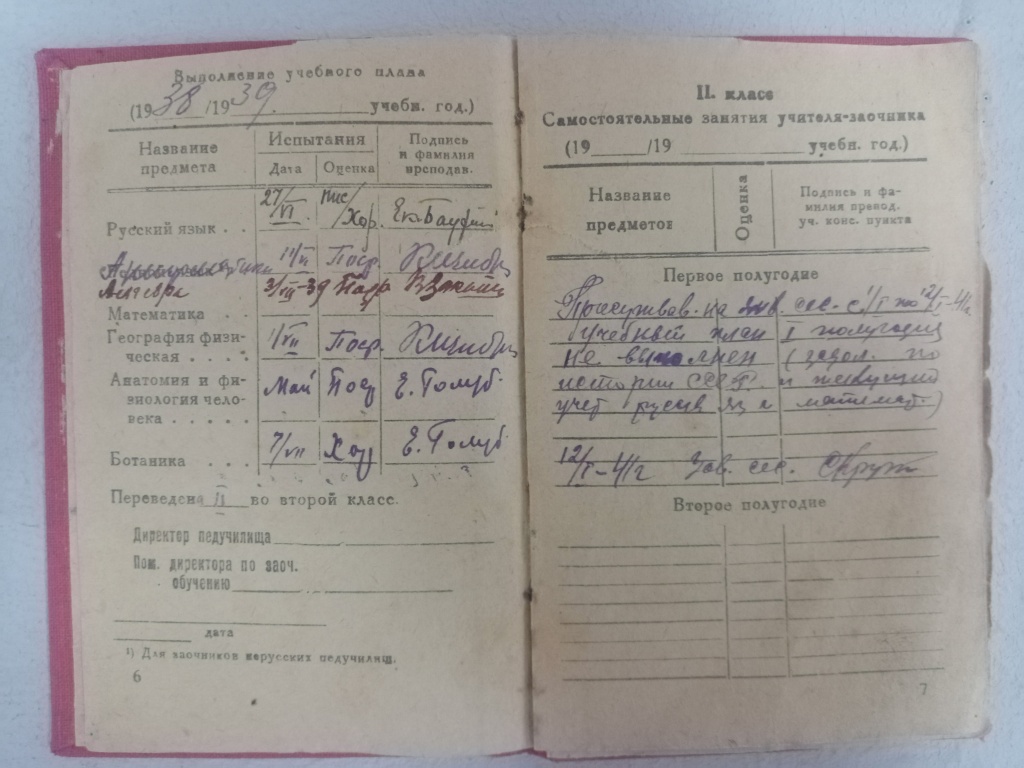 Выполнение учебного плана
(1938/1939. учебн. год.)
Название предмета
Испытания
Дата
Оценка
Подпись и фамилия преподав.
Русский язык . . 27/VI. пис/Хор.
Арифметика 11/VI Поср.
Алгебра 31/VII-39 Поср
Математика . . .
География физическая . . . . 1/VII Поср.
Анатомия и физиология человека . . . . . Май Поср Е. Голуб.
Ботаника . . . 7/VII Хор Е. Голуб.
Переведена II во второй класс.
Директор педучилища
Пом. директора по заоч. обучению
дата
¹) Для заочников нерусских педучилищ.
6
II. класс
Самостоятельные занятия учителя-заочника
(19 /19 учебн. год.)
Название предметов
Оценка
Подпись и фамилия препод. уч. конс. пункта
Первое полугодие
на янв. сес. с 1/I по 12/I-41г
учебный план I полугодия
не выполнен (задол. по
истории СССР. и текущий
учет русск яз и математ.)
12/I-41г Зав. сес.
Второе полугодие
7